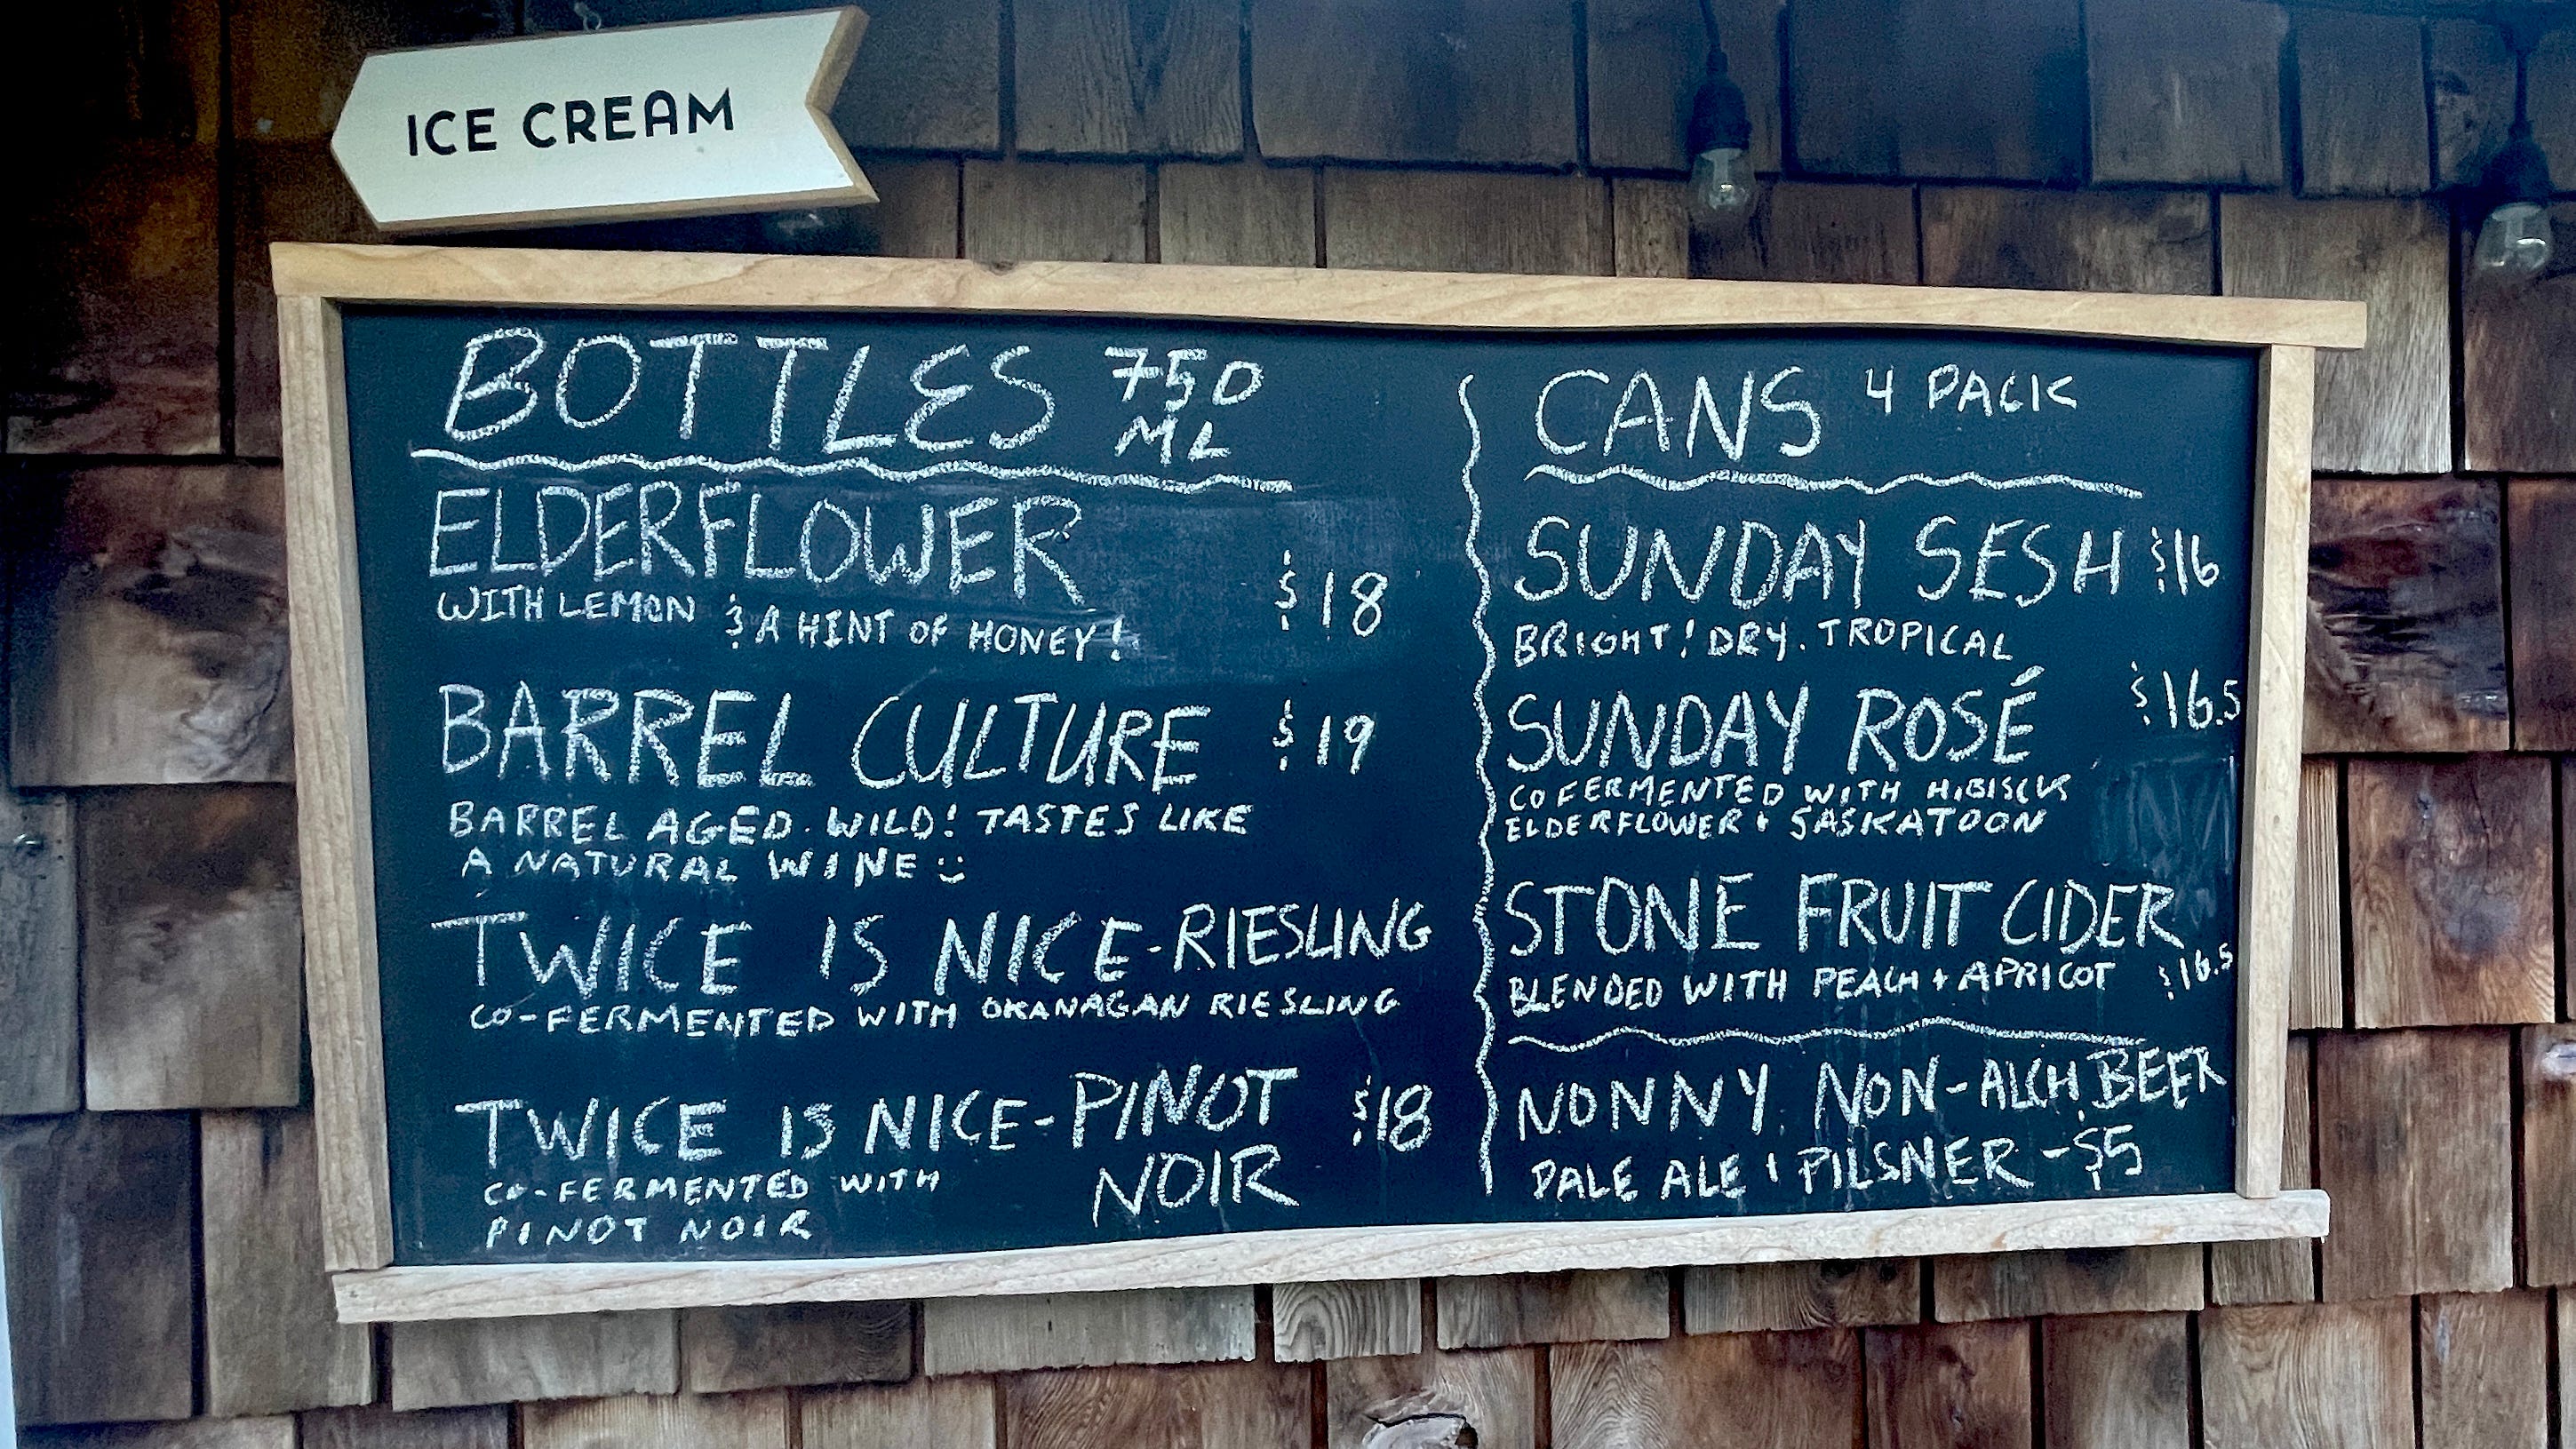 ICE CREAM
BOTTLES 750 ML
ELDERFLOWER
WITH LEMON & A HINT OF HONEY! $18
BARREL CULTURE $19
BARREL AGED. WILD! TASTES LIKE
A NATURAL WINE :)
TWICE IS NICE-RIESLING
CO-FERMENTED WITH OKANAGAN RIESLING
TWICE IS NICE-PINOT NOIR $18
CO-FERMENTED WITH
PINOT NOIR
CANS 4 PACK
SUNDAY SESH $16
BRIGHT! DRY. TROPICAL
SUNDAY ROSÉ $16.5
CO FERMENTED WITH HIBISCUS
ELDERFLOWER + SASKATOON
STONE FRUIT CIDER
BLENDED WITH PEACH + APRICOT $16.5
NONNY NON-ALCH. BEER
PALE ALE + PILSNER - $5